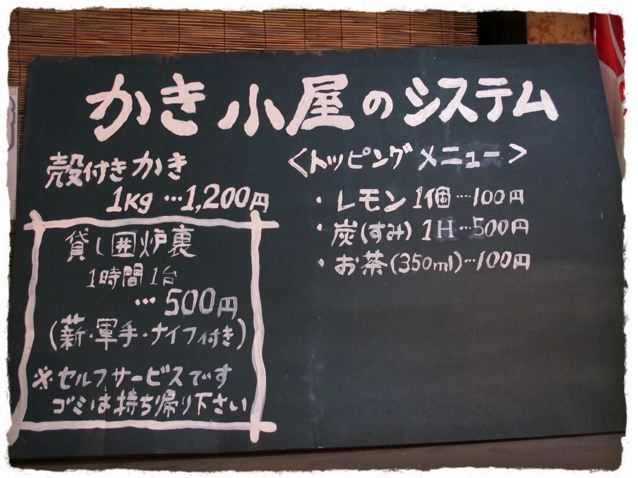 かき小屋のシステム
殻付きかき
1kg…1,200円
貸し囲炉裏
1時間1台
…500円
(薪・軍手・ナイフ付き)
※セルフサービスです
ゴミは持ち帰り下さい
<トッピングメニュー>
・レモン1個…100円
・炭(すみ)1H…500円
・お茶(350ml)…100円